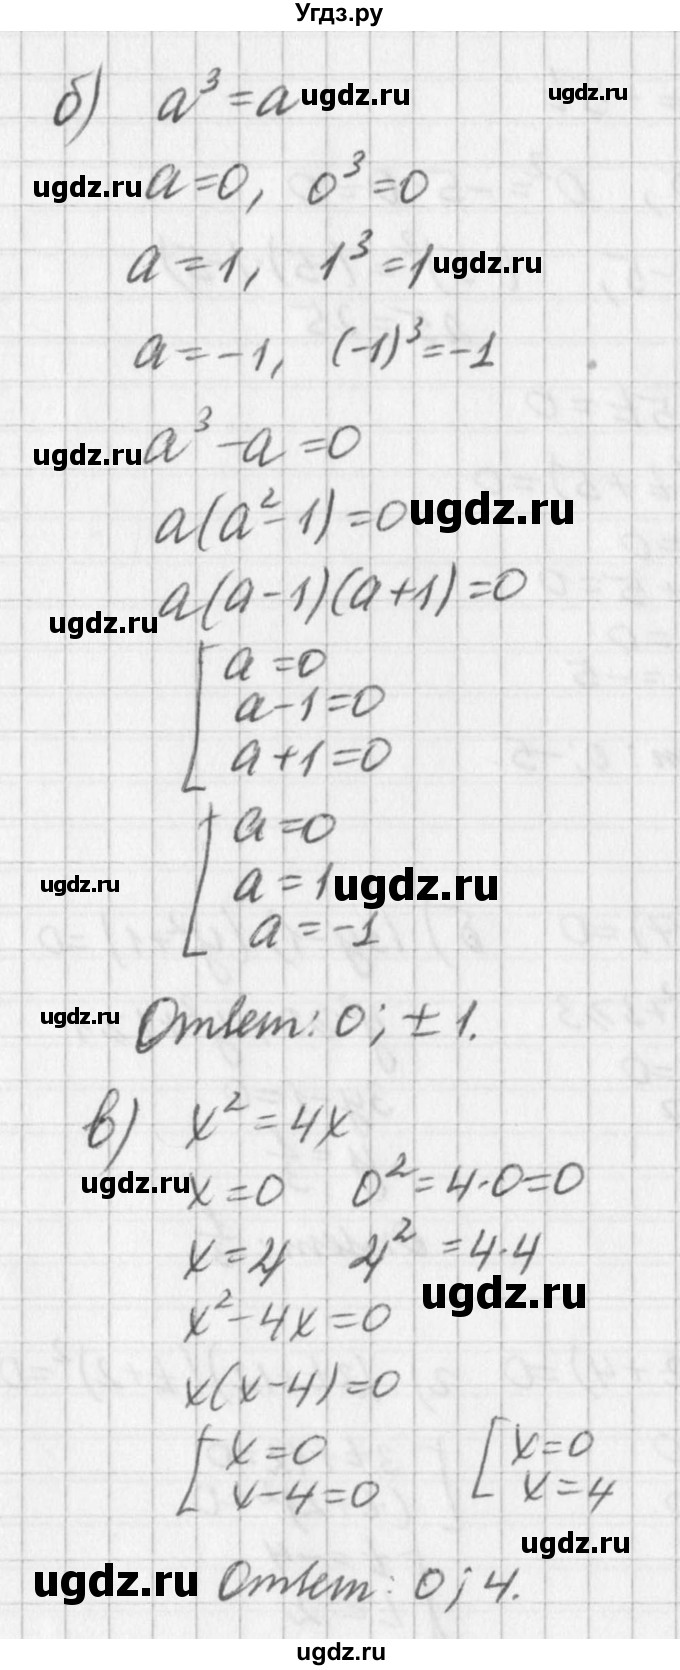 Угдз.ру
б) a³ = a ugdz.ru ugdz.ru
ugdz.ru a = 0, 0³ = 0
a = 1, 1³ = 1 ugdz.ru
a = -1, (-1)³ = -1
ugdz.ru a³ - a = 0
a(a² - 1) = 0 ugdz.ru
a(a - 1)(a + 1) = 0
ugdz.ru
[ a = 0
a - 1 = 0
a + 1 = 0
[ a = 0
ugdz.ru a = 1 ugdz.ru
a = -1
ugdz.ru Ответ: 0; ± 1.
в) x² = 4x
ugdz.ru x = 0 0² = 4·0 = 0
x = 4 4² = 4·4
ugdz.ru
x² - 4x = 0
x(x - 4) = 0
[ x = 0 [ x = 0
x - 4 = 0 x = 4
ugdz.ru
ugdz.ru Ответ: 0; 4.
ugdz.ru